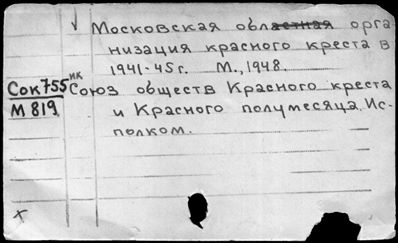 √ Московская областная орга
низация красного креста в
1941-45г. М., 1948.
ик
Сок 755 Союз обществ Красного креста
М 819 и Красного полумесяца. Ис-
полком.
х